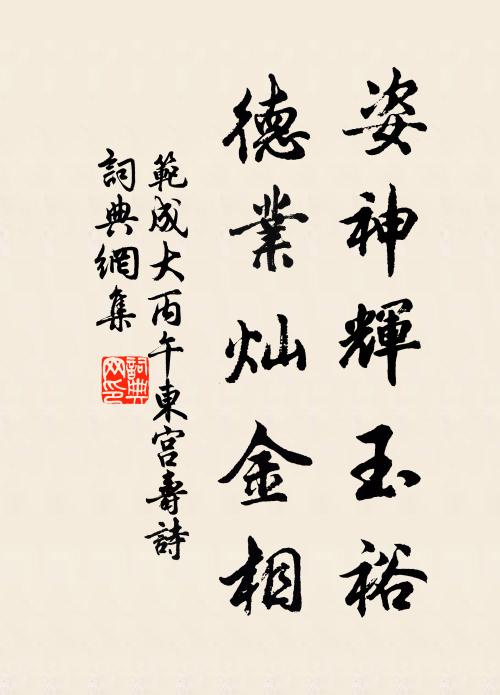 姿神輝玉裕
德業灿金相
範成大丙午東宮壽詩
詞典網集
詞典网印